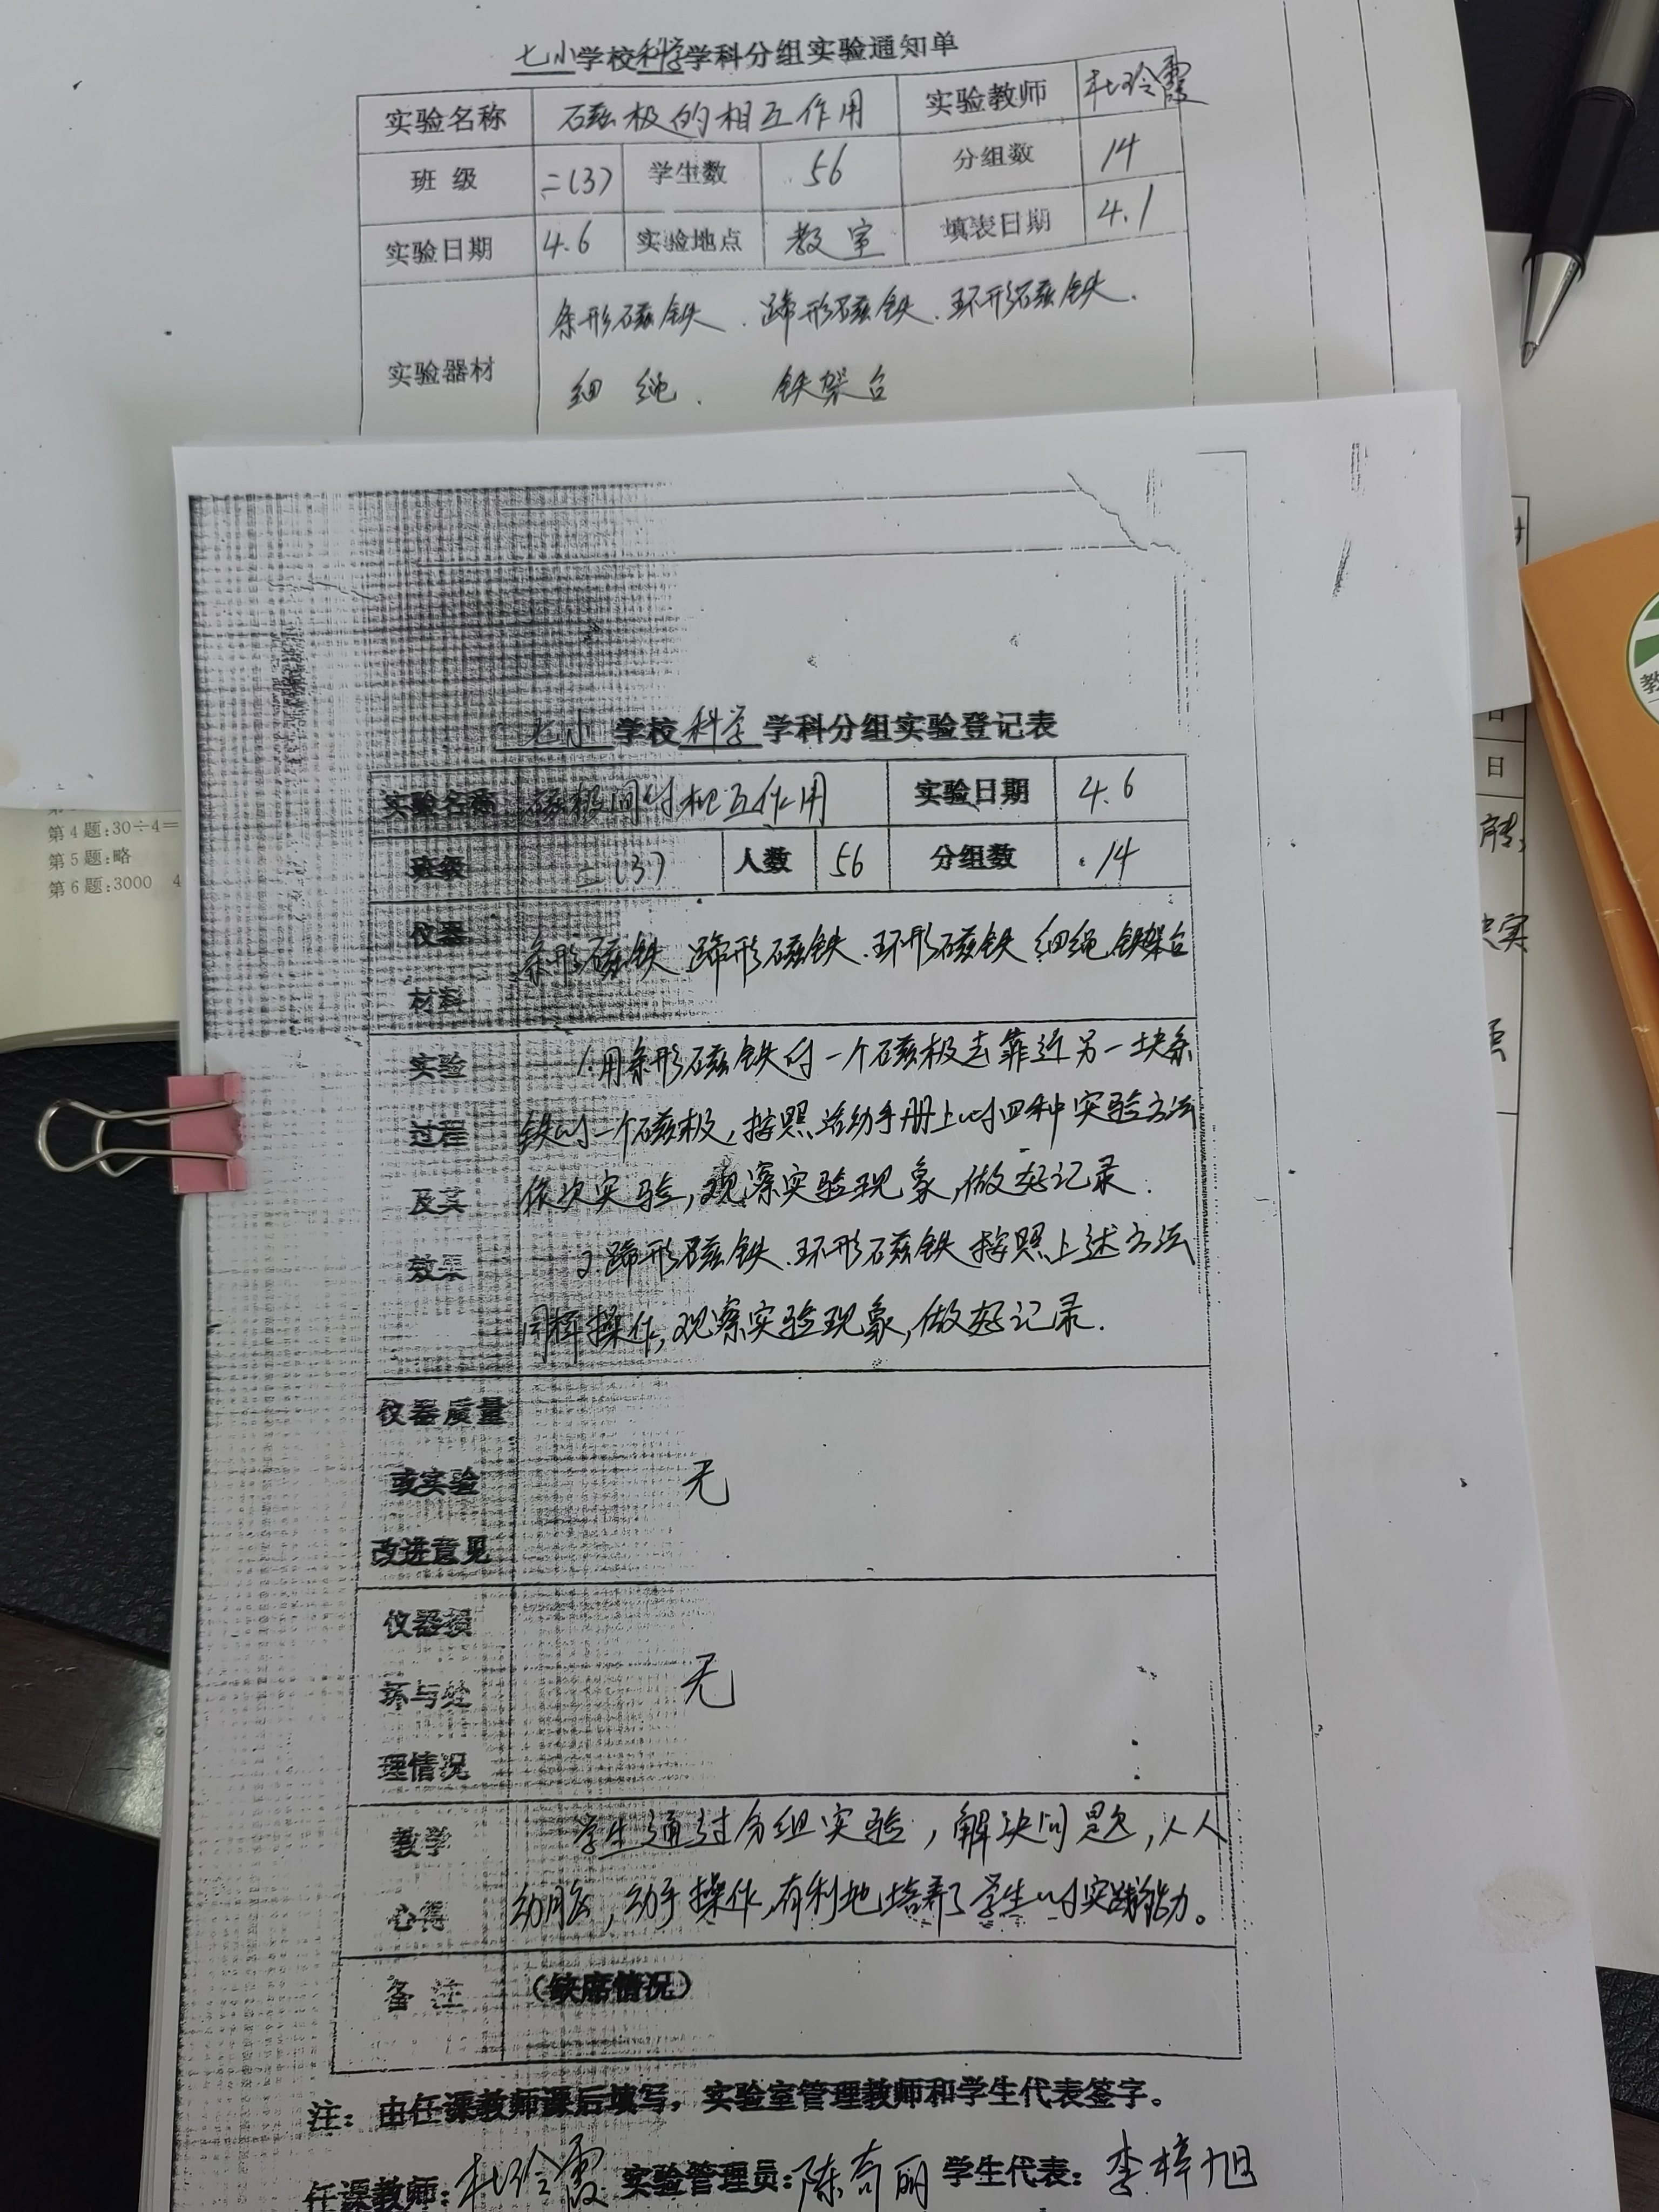 七小学校科学学科分组实验通知单
实验名称 磁极的相互作用 实验教师 杜玲霞
班级 二(3) 学生数 56 分组数 14
实验日期 4.6 实验地点 教室 填表日期 4.1
条形磁铁、蹄形磁铁、环形磁铁、
实验器材
细绳、铁架台
七小学校科学学科分组实验登记表
实验名称 磁极间的相互作用 实验日期 4.6
班级 二(3) 人数 56 分组数 14
仪器
条形磁铁 蹄形磁铁、环形磁铁 细绳 铁架台
材料
实验 1.用条形磁铁的一个磁极去靠近另一块条
过程 铁的一个磁极,按照活动手册上的四种实验方法
及其 依次实验,观察实验现象,做好记录.
效果 2.蹄形磁铁、环形磁铁按照上述方法
同样操作,观察实验现象,做好记录.
仪器质量
或实验 无
改进意见
仪器损
坏与处 无
理情况
教学 学生通过分组实验,解决问题,人人
心得 动脑,动手操作,有利地培养了学生的实践能力。
备注 (缺席情况)
注:由任课教师课后填写,实验室管理教师和学生代表签字。
任课教师:杜玲霞 实验管理员:陈奇丽 学生代表:李梓旭
第4题:30÷4=
第5题:略
第6题:3000 4
日
教